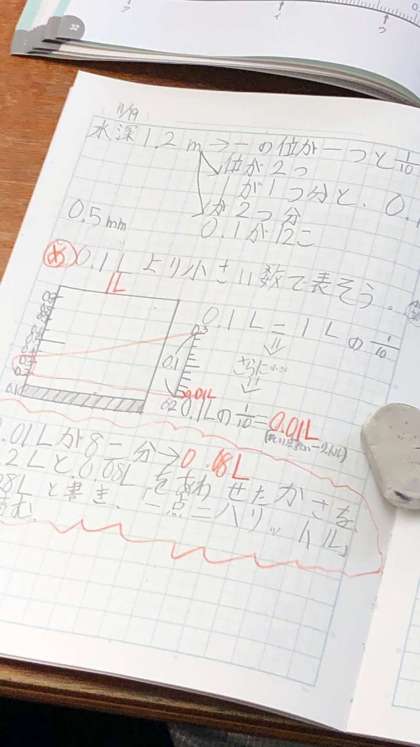 11/19
水深1.2m→一の位が一つと1/10
位が2つ
1が1つ分と、0.1
が2つ分
0.5mm 0.1が12こ
め 0.1Lより小さい数で表そう。
1L
0.1L=1Lの1/10
さらに小
0.1
0.2
0.01L
0.1Lの1/10=0.01L
.01Lが8こ分→0.08L
.2Lと0.08Lをあわせたかさを、
28Lと書き、一点二八リットル」
読む。